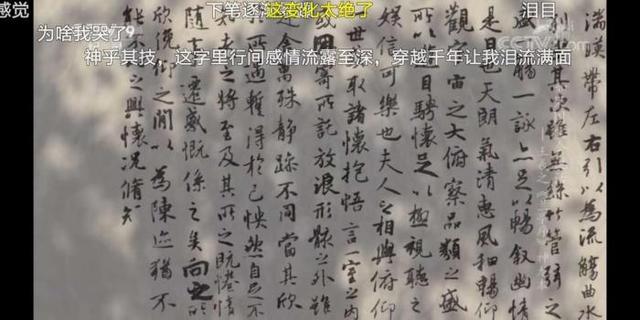 感觉
下笔逐
这变化太绝了
泪目
为啥我哭了9
神乎其技，这字里行间感情流露至深，穿越千年让我泪流满面
CCTV
湍暎帶左右引以為流觴曲水
列其次雖無絲竹管弦之
盛觴一詠亦足以暢叙幽情
是日也天朗氣清惠風和暢仰
觀宙之大俯察品類之盛
所以目騁懷足以極視聽之
娱信可樂也夫人之相與俯仰
世取諸懷抱悟言一室之内
因寄所託放浪形骸之外雖
舍萬殊静躁不同當其欣
所遇暫得於己怏然自足不
老之將至及其所之既惓情
随遷感慨係之矣向之所
欣俛仰之間以為陳迹猶不
能之興懷況脩短